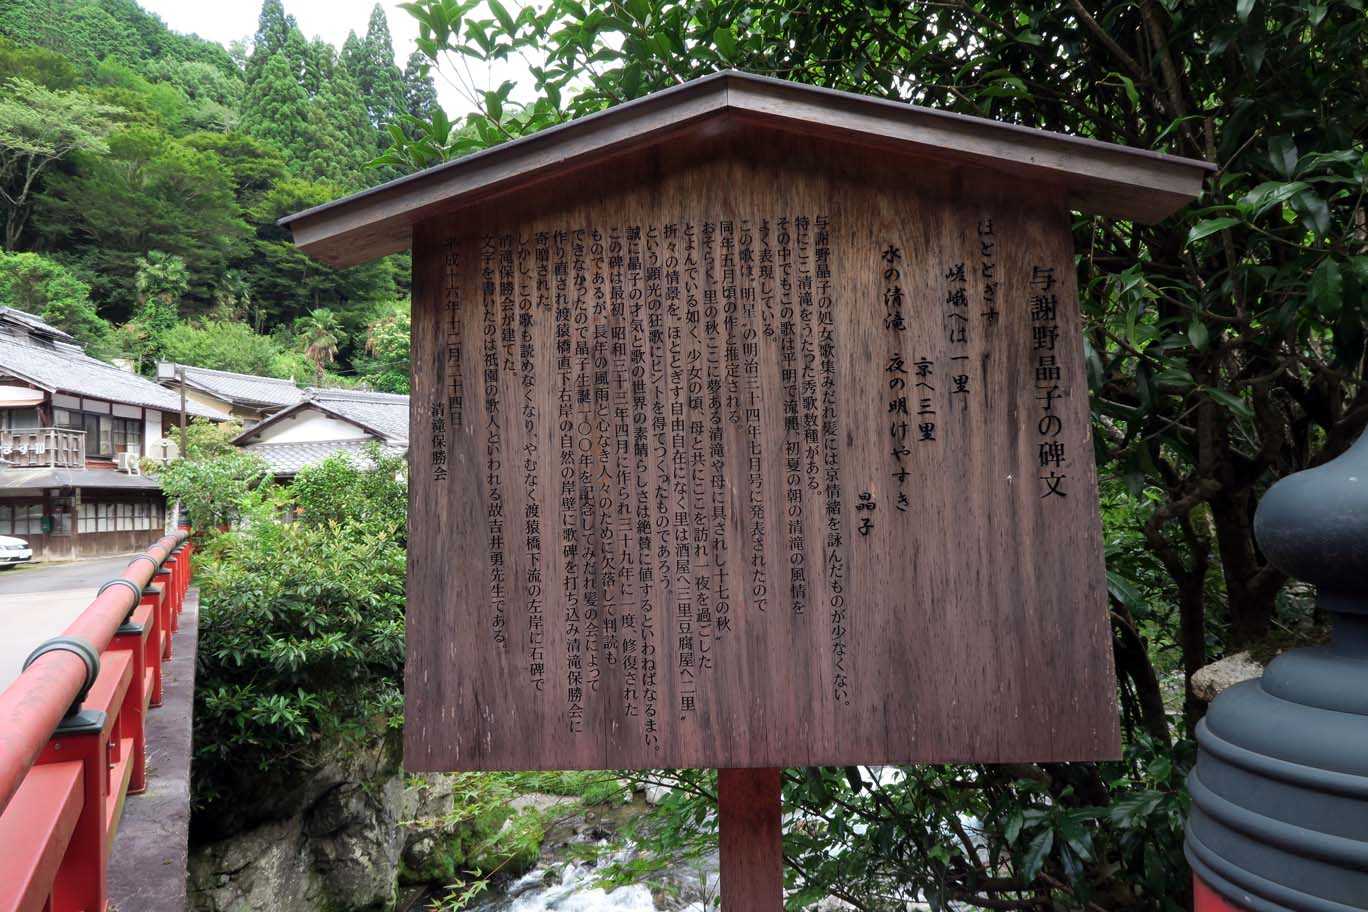 与謝野晶子の碑文
ほととぎす
嵯峨へは一里
京へ三里
水の清滝 夜の明けやすき
晶子
与謝野晶子の処女歌集みだれ髪には京情緒を詠んだものが少なくない。
特にここ清滝をうたった秀歌数種がある。
その中でもこの歌は平明で流麗、初夏の朝の清滝の風情を
よく表現している。
この歌は、明星の明治三十四年七月号に発表されたので
同年五月頃の作と推定される
おそらく〝里の秋ここに夢ある清滝や母に具されし十七の秋〟
とよんでいる如く、少女の頃、母と共にここを訪れ一夜を過ごした
折々の情景を、〝ほととぎす自由自在になく里は酒屋へ三里豆腐屋へ二里〟
という頭光の狂歌にヒントを得てつくったものであろう。
誠に晶子の才気と歌の世界の素晴らしさは絶賛に値するといわねばなるまい。
この碑は最初、昭和三十三年四月に作られ三十九年に一度、修復された
ものであるが、長年の風雨と心なき人々のために欠落して判読も
できなかったので晶子生誕一〇〇年を記念してみだれ髪の会によって
作り直され渡猿橋直下右岸の自然の岸壁に歌碑を打ち込み清滝保勝会に
寄贈された。
しかし、この歌も読めなくなり、やむなく渡猿橋下流の左岸に石碑で
清滝保勝会が建てた。
文字を書いたのは祇園の歌人といわれる故吉井勇先生である。
平成十六年十二月二十四日
清滝保勝会